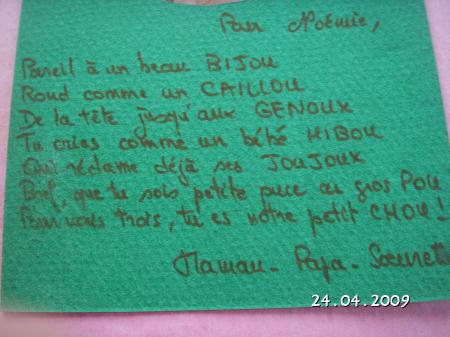 Pour Noémie,
Pareil à un beau BIJOU
Rond comme un CAILLOU
De la tête jusqu'aux GENOUX
Tu cries comme un bébé HIBOU
Qui réclame déjà ses JOUJOUX
Bref, que tu sois petite puce ou gros POU
Pour nous trois, tu es notre petit CHOU !
Maman - Papa - Soeurette
24.04.2009